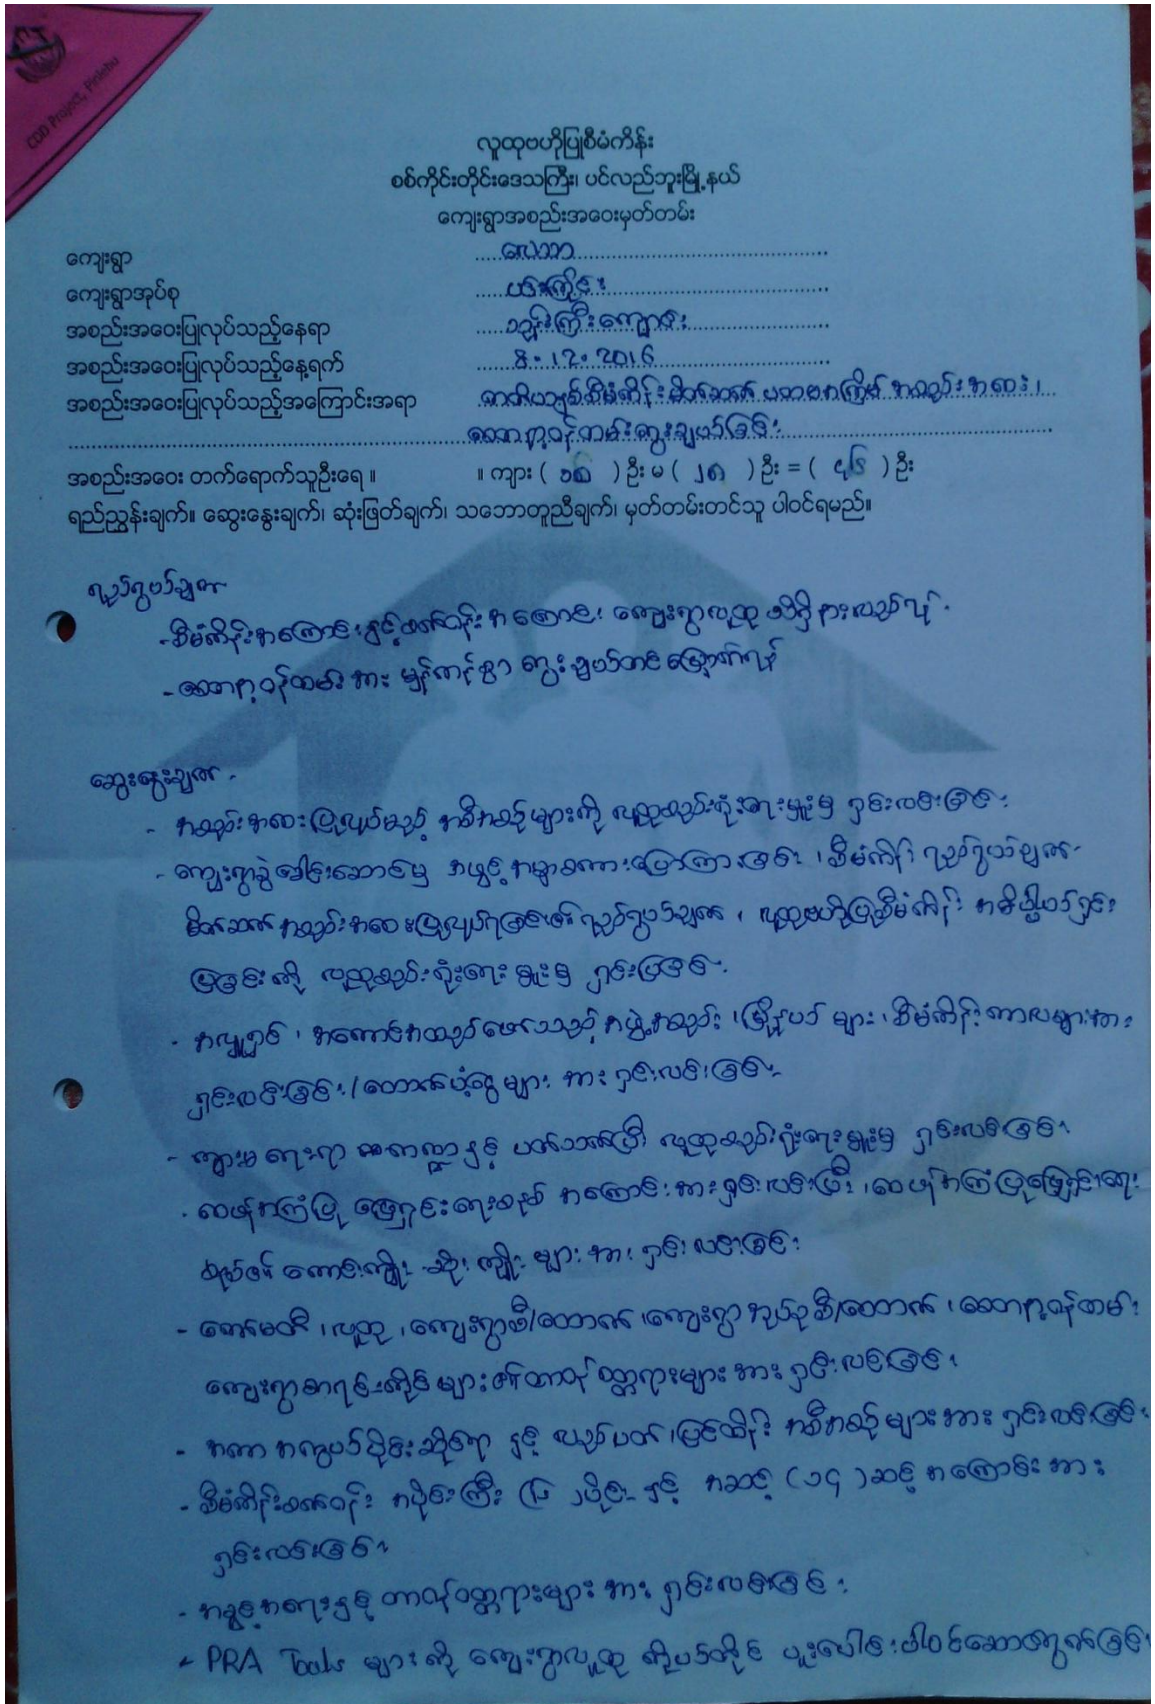 CDD Project, Pinlebu
လူထုဗဟိုပြုစီမံကိန်း
စစ်ကိုင်းတိုင်းဒေသကြီး၊ ပင်လည်ဘူးမြို့နယ်
ကျေးရွာအစည်းအဝေးမှတ်တမ်း
ကျေးရွာ
ကျေးရွာအုပ်စု
အစည်းအဝေးပြုလုပ်သည့်နေရာ ဘုန်းကြီးကျောင်း
အစည်းအဝေးပြုလုပ်သည့်နေ့ရက် 8.12.2016
အစည်းအဝေးပြုလုပ်သည့်အကြောင်းအရာ စီမံကိန်းမိတ်ဆက် ပထမအကြိမ် အစည်းအဝေး၊
စေတနာ့ဝန်ထမ်းရွေးချယ်ခြင်း
အစည်းအဝေး တက်ရောက်သူဦးရေ ။ ။ ကျား ( ၁၈ ) ဦး မ ( ၂၈ ) ဦး = ( ၄၆ ) ဦး
ရည်ညွှန်းချက်။ ဆွေးနွေးချက်၊ ဆုံးဖြတ်ချက်၊ သဘောတူညီချက်၊ မှတ်တမ်းတင်သူ ပါဝင်ရမည်။
ရည်ရွယ်ချက်
- စီမံကိန်းအကြောင်းနှင့်စက်ဝန်းအကြောင်း ကျေးရွာလူထု သိရှိနားလည်ရန်
- စေတနာ့ဝန်ထမ်းအား မှန်ကန်စွာ ရွေးချယ်တင်မြှောက်ရန်
ဆွေးနွေးချက်
- အစည်းအဝေးပြုလုပ်မည့် အစီအစဉ်များကို လူထုစည်းရုံးရေးမှူးမှ ရှင်းလင်းခြင်း
- ကျေးရွာခွဲခေါင်းဆောင်မှ အဖွင့်အမှာစကားပြောကြားခြင်း၊ စီမံကိန်း ရည်ရွယ်ချက်
မိတ်ဆက်အစည်းအဝေးပြုလုပ်ရခြင်း၏ရည်ရွယ်ချက်၊ လူထုဗဟိုပြုစီမံကိန်း အဓိပ္ပါယ်ရှင်း
ပြခြင်းကို လူထုစည်းရုံးရေးမှူးမှ ရှင်းပြခြင်း
- အလှူရှင်၊ အကောင်အထည်ဖော်သည့်အဖွဲ့အစည်း၊ မြို့နယ်များ၊ စီမံကိန်းကာလများအား
ရှင်းလင်းခြင်း/ထောက်ပံ့ငွေများအား ရှင်းလင်းခြင်း
- ကျား/မရေးရာ နှင့် ပတ်သက်ပြီး လူထုစည်းရုံးရေးမှူးမှ ရှင်းလင်းခြင်း
- ဝေဖန်အကြံပြုဖြေရှင်းရေးစနစ် အကြောင်းအား ရှင်းလင်းပြီး၊ ဝေဖန်အကြံပြုဖြေရှင်းရေး
စနစ်၏ ကောင်းကျိုး ဆိုးကျိုးများအား ရှင်းလင်းခြင်း
- ကော်မတီ၊ လူထု၊ ကျေးရွာစီ/ထောက်၊ ကျေးရွာအုပ်စုစီ/ထောက်၊ စေတနာ့ဝန်ထမ်း
ကျေးရွာစာရင်းကိုင်များ၏တာဝန်ဝတ္တရားများအား ရှင်းလင်းခြင်း
- အကာအကွယ်ပိုင်းဆိုင်ရာ နှင့် လည်ပတ်၊ ပြင်ထိန်း အစီအစဉ်များအား ရှင်းလင်းခြင်း
- စီမံကိန်းစက်ဝန်း အပိုင်းကြီး (၆) ပိုင်း နှင့် အဆင့် (၁၄) ဆင့် အကြောင်းအား
ရှင်းလင်းခြင်း
- အခွင့်အရေးနှင့် တာဝန်ဝတ္တရားများအား ရှင်းလင်းခြင်း
- PRA Tools များကို ကျေးရွာလူထု ကိုယ်တိုင် ပူးပေါင်းပါဝင်ဆောင်ရွက်ခြင်း